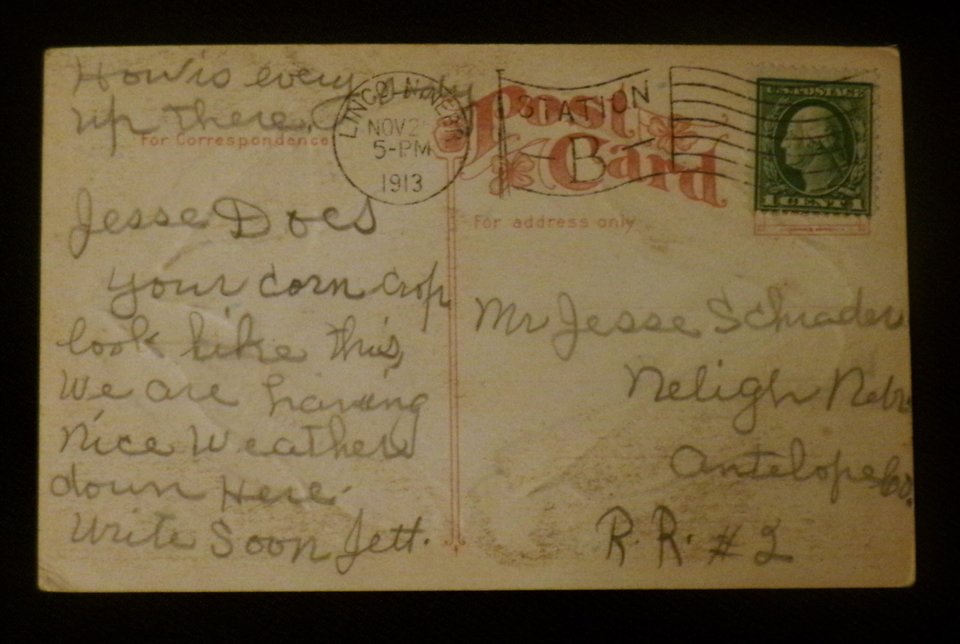 How is every body
up there.
For Correspondence
LINCOLN, NEBR.
NOV 2
5-PM
1913
STATION
B
Post
Card
U.S. POSTAGE
1 CENT 1
For address only
Jesse Does
your corn crop
look like this,
We are having
Nice Weather
down Here.
Write Soon Jett.
Mr Jesse Schrader
Neligh Nebr
Antelope Co.
R.R. #2